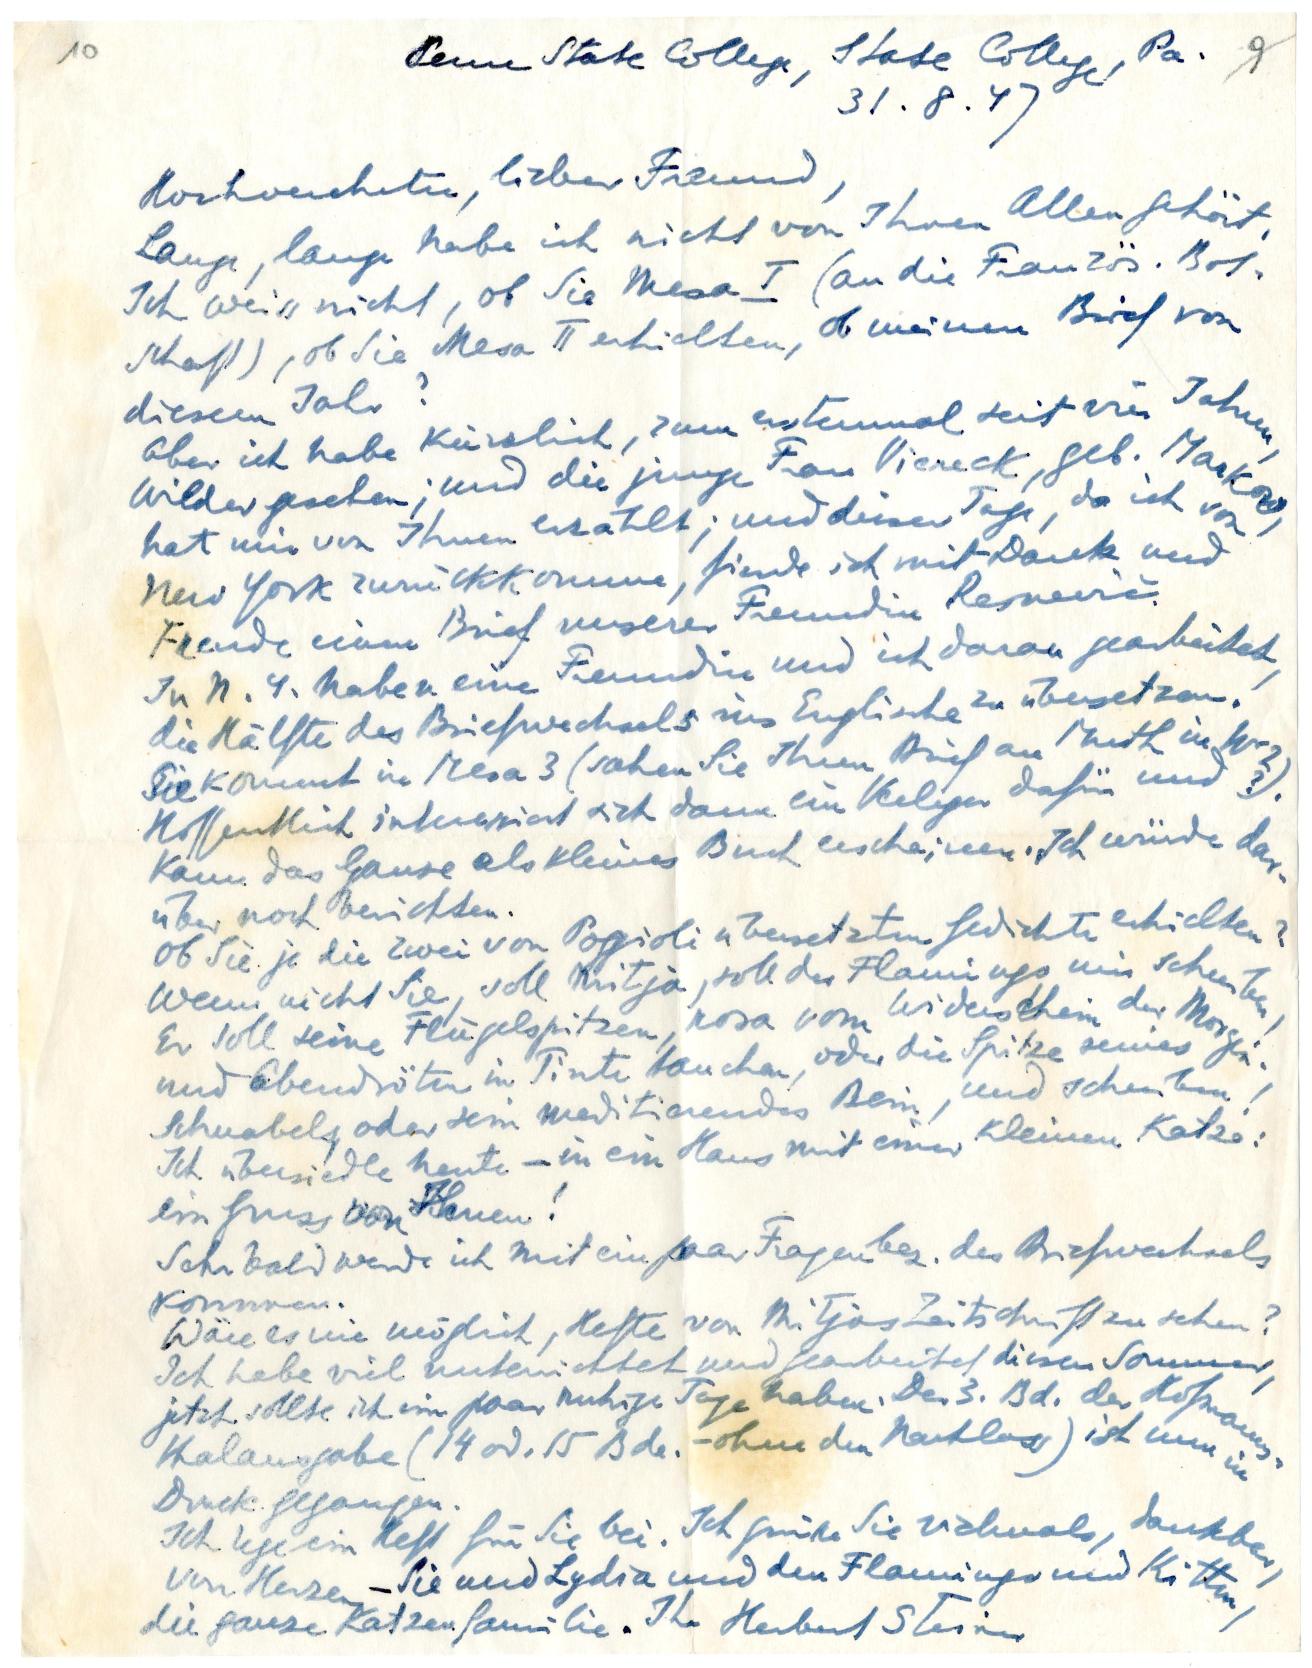 10
9
Penn State College, State College, Pa.
31. 8. 47
Hochverehrter, lieber Freund,
Lange, lange habe ich nicht von Ihnen Allen gehört.
Ich weiss nicht, ob Sie Mesa I (an die Französ. Bot-
schaft), ob Sie Mesa II erhielten, ob meinen Brief von
diesem Jahr?
Aber ich habe kürzlich, zum erstenmal seit vier Jahren,
Wilder gesehen; und die junge Frau Viereck, geb. Markow,
hat mir von Ihnen erzählt; und dieser Tage, da ich von
New York zurückkomme, finde ich mit Dank und
Freude einen Brief unserer Freundin Resnevič.
In N. Y. haben eine Freundin und ich daran gearbeitet,
die Hälfte des Briefwechsels ins Englische zu übersetzen.
Sie kommt in Mesa 3 (sahen Sie Ihren Brief an Muth in Nr 2?).
Hoffentlich interessiert sich dann ein Verleger dafür und
kann das Ganze als kleines Buch erscheinen. Ich würde dar-
über noch berichten.
Ob Sie je die zwei von Poggioli übersetzten Gedichte erhielten?
Wenn nicht Sie, soll Mitja, soll der Flamingo mir schreiben!
Er soll seine Flügelspitzen, rosa vom Widerschein der Morgen-
und Abendröten in Tinte tauchen, oder die Spitze seines
Schnabels, oder sein meditierendes Bein, und schreiben!
Ich übersiedle heute – in ein Haus mit einer kleinen Katze:
ein Gruss von Ihnen!
Sehr bald werde ich mit ein paar Fragen bez. des Briefwechsels
kommen.
Wäre es nie möglich, Hefte von Mitjas Zeitschrift zu sehen?
Ich habe viel unterrichtet und gearbeitet diesen Sommer,
jetzt sollte ich ein paar ruhige Tage haben. Der 3. Bd. der Hofmanns-
thalausgabe (14 od. 15 Bde. – ohne den Nachlass) ist nun in
Druck gegangen.
Ich lege ein Heft für Sie bei. Ich grüsse Sie vielmals, dankbar,
von Herzen – Sie und Lydia und den Flamingo und Kitten,
die ganze Katzenfamilie. Ihr Herbert Steiner